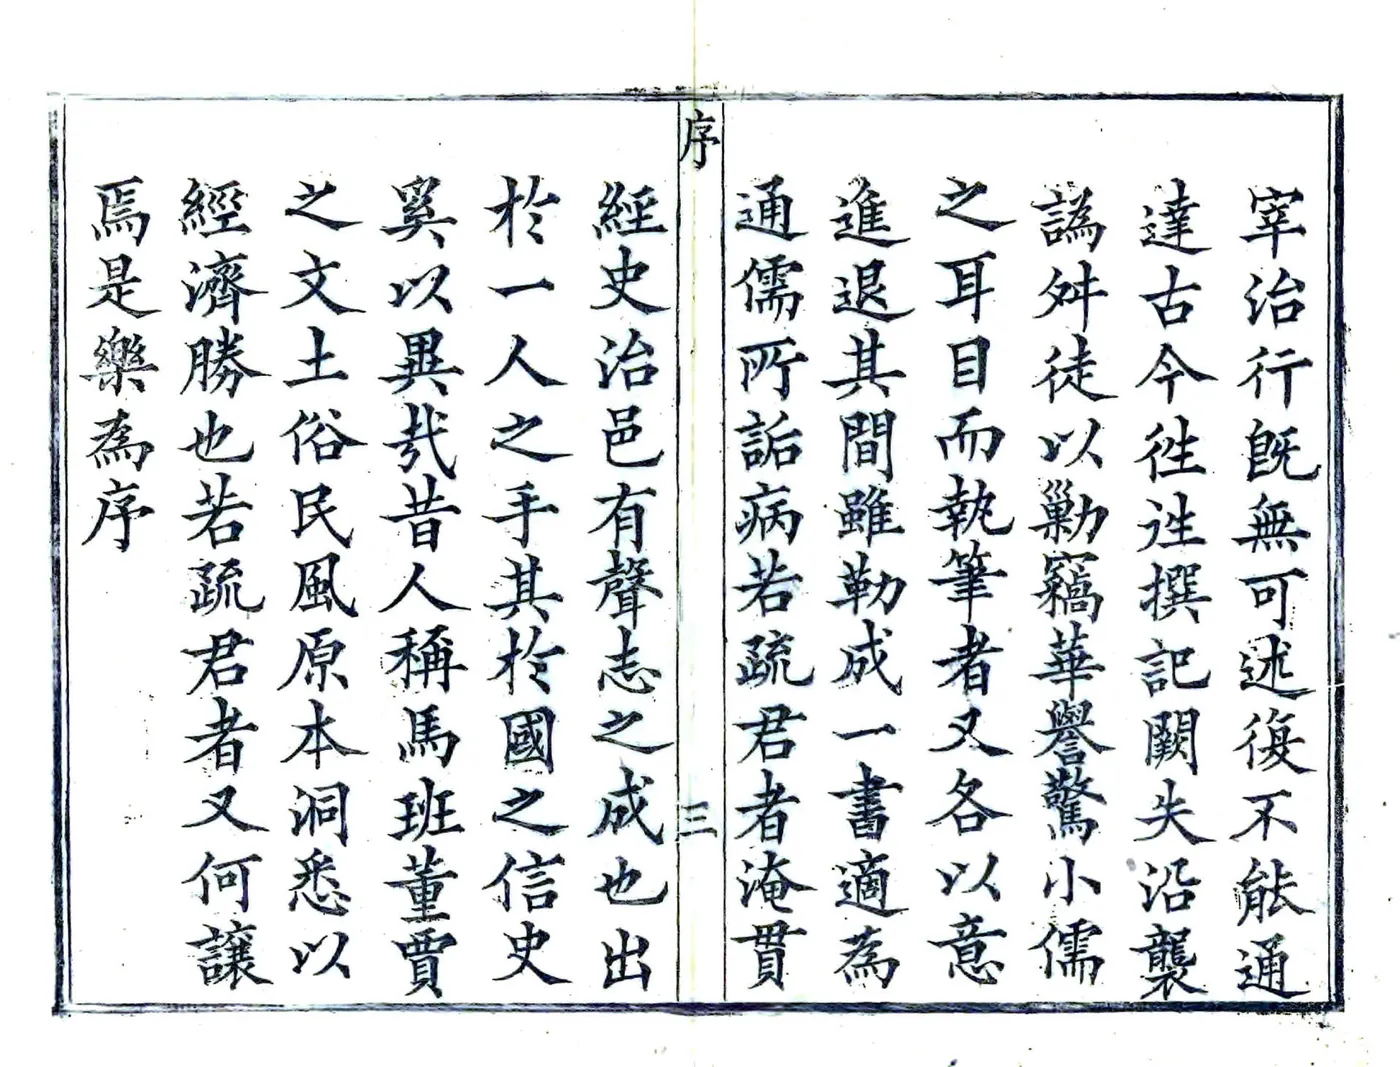 宰治行旣無可述復不能通
達古今徃徃撰記闕失沿襲
譌舛徒以勦竊華譽驚小儒
之耳目而執筆者又各以意
進退其間雖勒成一書適為
通儒所詬病若疏君者淹貫
序
三
經史治邑有聲志之成也出
於一人之手其於國之信史
奚以異哉昔人稱馬班董賈
之文土俗民風原本洞悉以
經濟勝也若疏君者又何讓
焉是樂為序